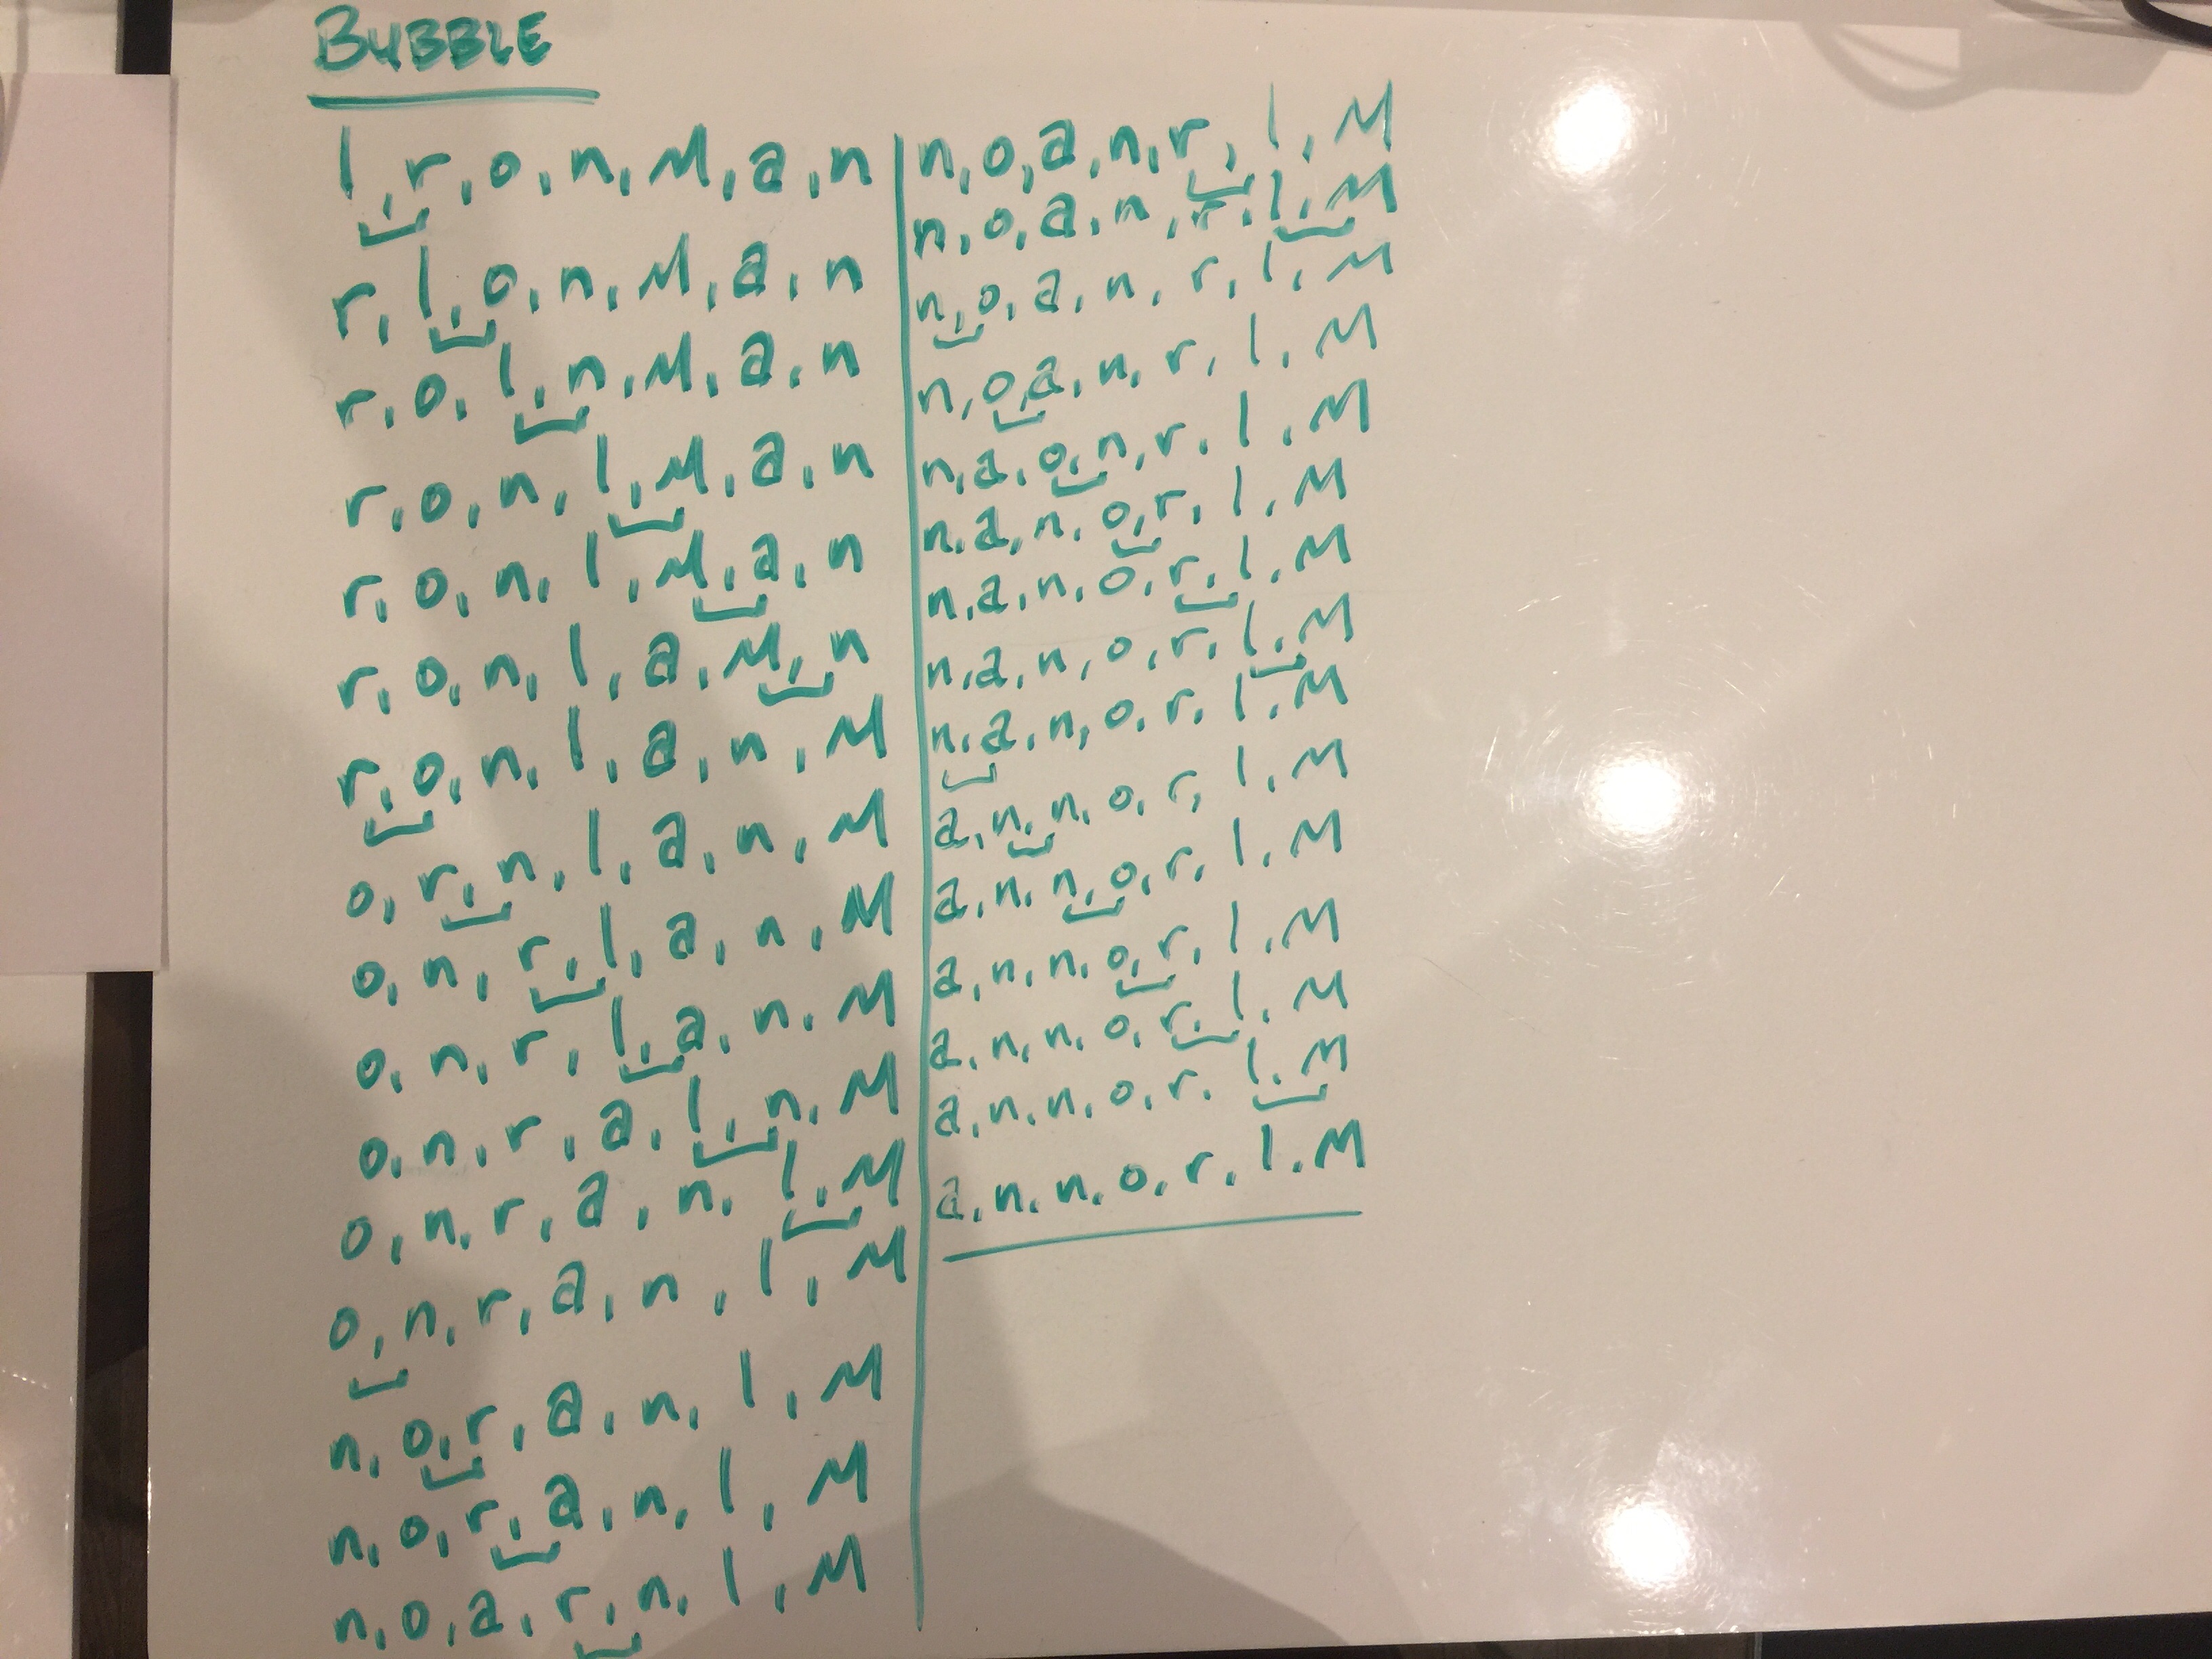 BUBBLE
l,r,o,n,M,a,n
r,l,o,n,M,a,n
r,o,l,n,M,a,n
r,o,n,l,M,a,n
r,o,n,l,M,a,n
r,o,n,l,a,M,n
r,o,n,l,a,n,M
o,r,n,l,a,n,M
o,n,r,l,a,n,M
o,n,r,l,a,n,M
o,n,r,a,l,n,M
o,n,r,a,n,l,M
o,n,r,a,n,l,M
n,o,r,a,n,l,M
n,o,r,a,n,l,M
n,o,a,r,n,l,M
n,o,a,n,r,l,M
n,o,a,n,r,l,M
n,o,a,n,r,l,M
n,o,a,n,r,l,M
n,a,o,n,r,l,M
n,a,n,o,r,l,M
n,a,n,o,r,l,M
n,a,n,o,r,l,M
n,a,n,o,r,l,M
a,n,n,o,r,l,M
a,n,n,o,r,l,M
a,n,n,o,r,l,M
a,n,n,o,r,l,M
a,n,n,o,r,l,M
a,n,n,o,r,l,M